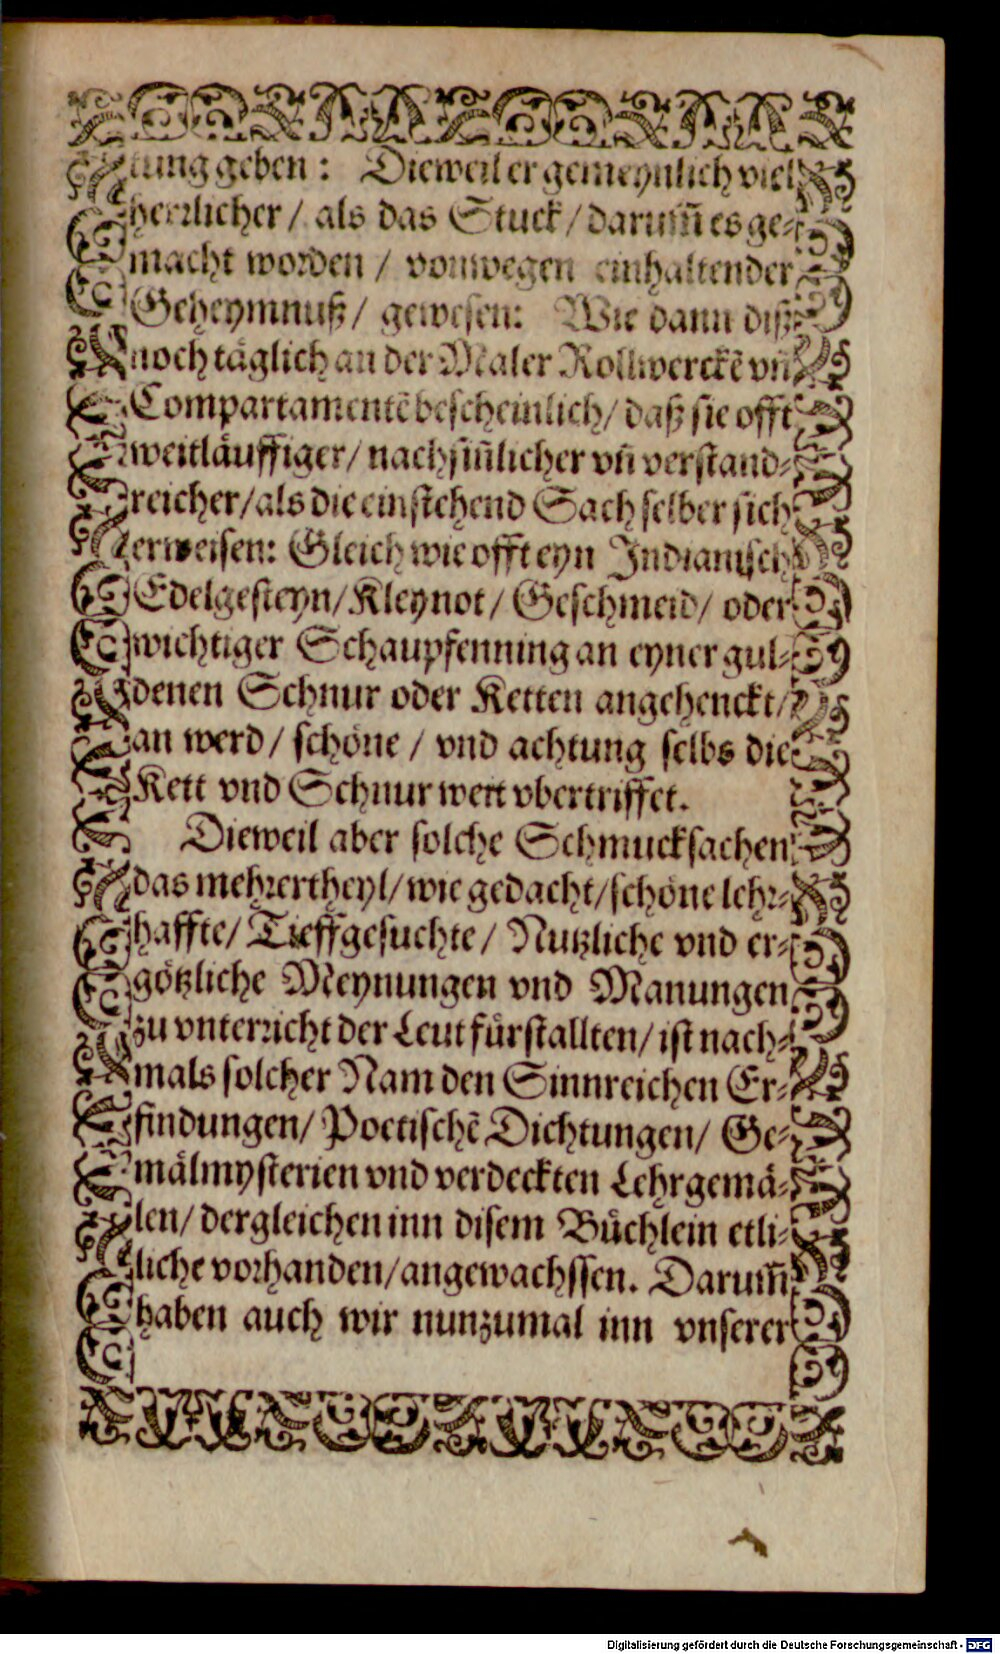 tung geben: Dieweil er gemeynlich viel
herrlicher / als das Stuck / darum̃ es ge⸗
macht worden / vonwegen einhaltender
Geheymnuß / gewesen: Wie dann diß
noch täglich an der Maler Rollwerckē vñ
Compartamentē bescheinlich / daß sie offt
weitläuffiger / nachsiñlicher vñ verstand⸗
reicher / als die einstehend Sach selber sich
erweisen: Gleich wie offt eyn Indianisch
Edelgesteyn / Kleynot / Geschmeid / oder
wichtiger Schaupfenning an eyner gul⸗
denen Schnur oder Ketten angehenckt /
an werd / schöne / vnd achtung selbs die
Kett vnd Schnur weit vbertriffet.
Dieweil aber solche Schmucksachen
das mehrertheyl / wie gedacht / schöne lehr⸗
haffte / Tieffgesuchte / Nutzliche vnd er⸗
götzliche Meynungen vnd Manungen
zu vnterricht der Leut fürstallten / ist nach⸗
mals solcher Nam den Sinnreichen Er⸗
findungen / Poetischē Dichtungen / Ge⸗
mälmysterien vnd verdeckten Lehrgemä⸗
len / dergleichen inn disem Büchlein etli⸗
liche vorhanden / angewachssen. Darum̃
haben auch wir nunzumal inn vnserer
Digitalisierung gefördert durch die Deutsche Forschungsgemeinschaft - DFG